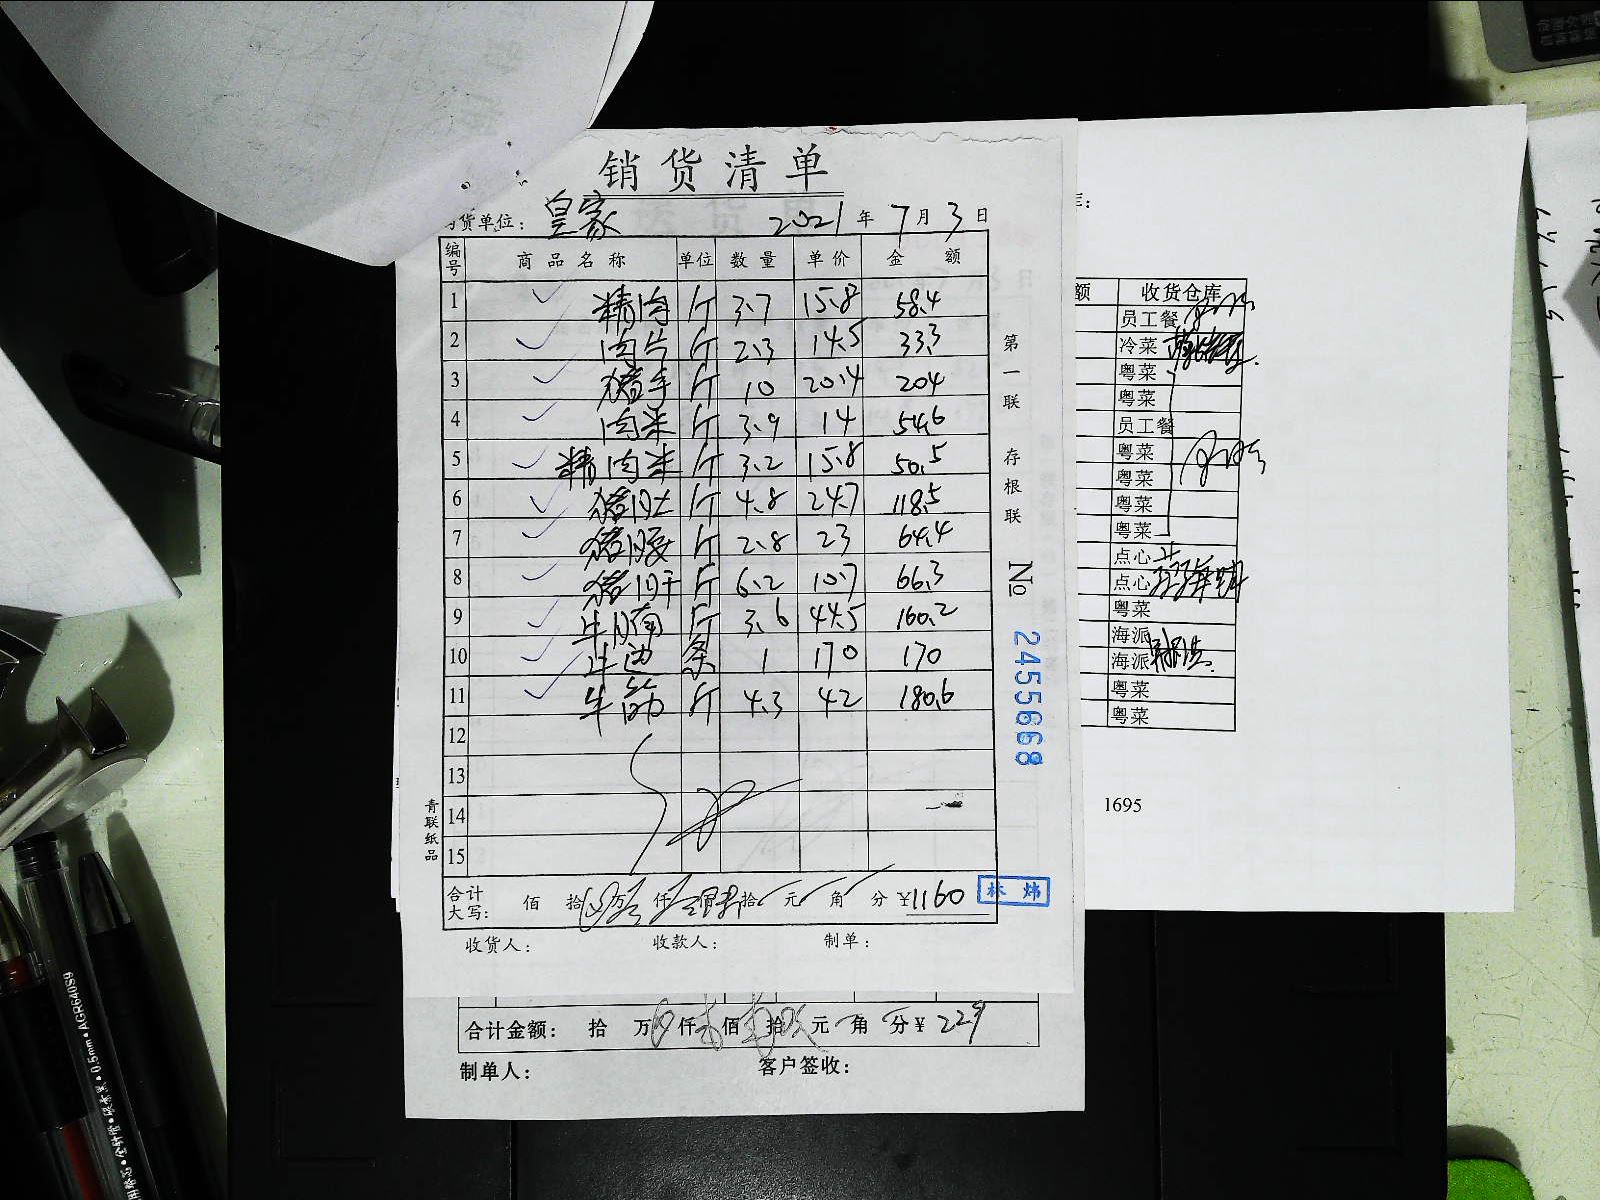 销货清单
货单位： 皇家 2021年7月3日
编号 商品名称 单位 数量 单价 金额
1 精肉 斤 3.7 15.8 58.4
2 肉片 斤 2.3 14.5 33.3
3 猪手 斤 10 20.4 204
4 肉米 斤 3.9 14 54.6
5 精肉米 斤 3.2 15.8 50.5
6 猪肚 斤 4.8 24.7 118.5
7 猪腰 斤 2.8 23 64.4
8 猪肝 斤 6.2 10.7 66.3
9 牛腩 斤 3.6 44.5 160.2
10 牛边 条 1 170 170
11 牛筋 斤 4.3 42 180.6
12
13
14
15
合计大写： 佰 拾 万 仟 拾 元 角 分 ¥1160
林炜
收货人： 收款人： 制单：
第一联 存根联
№ 2455668
青联纸品
合计金额： 拾 万 仟 佰 拾 元 角 分 ¥ 229
制单人： 客户签收：
额 收货仓库
员工餐
冷菜
粤菜
粤菜
员工餐
粤菜
粤菜
粤菜
粤菜
点心
点心
粤菜
海派
海派
粤菜
粤菜
1695
0.5mm•AGR640S9